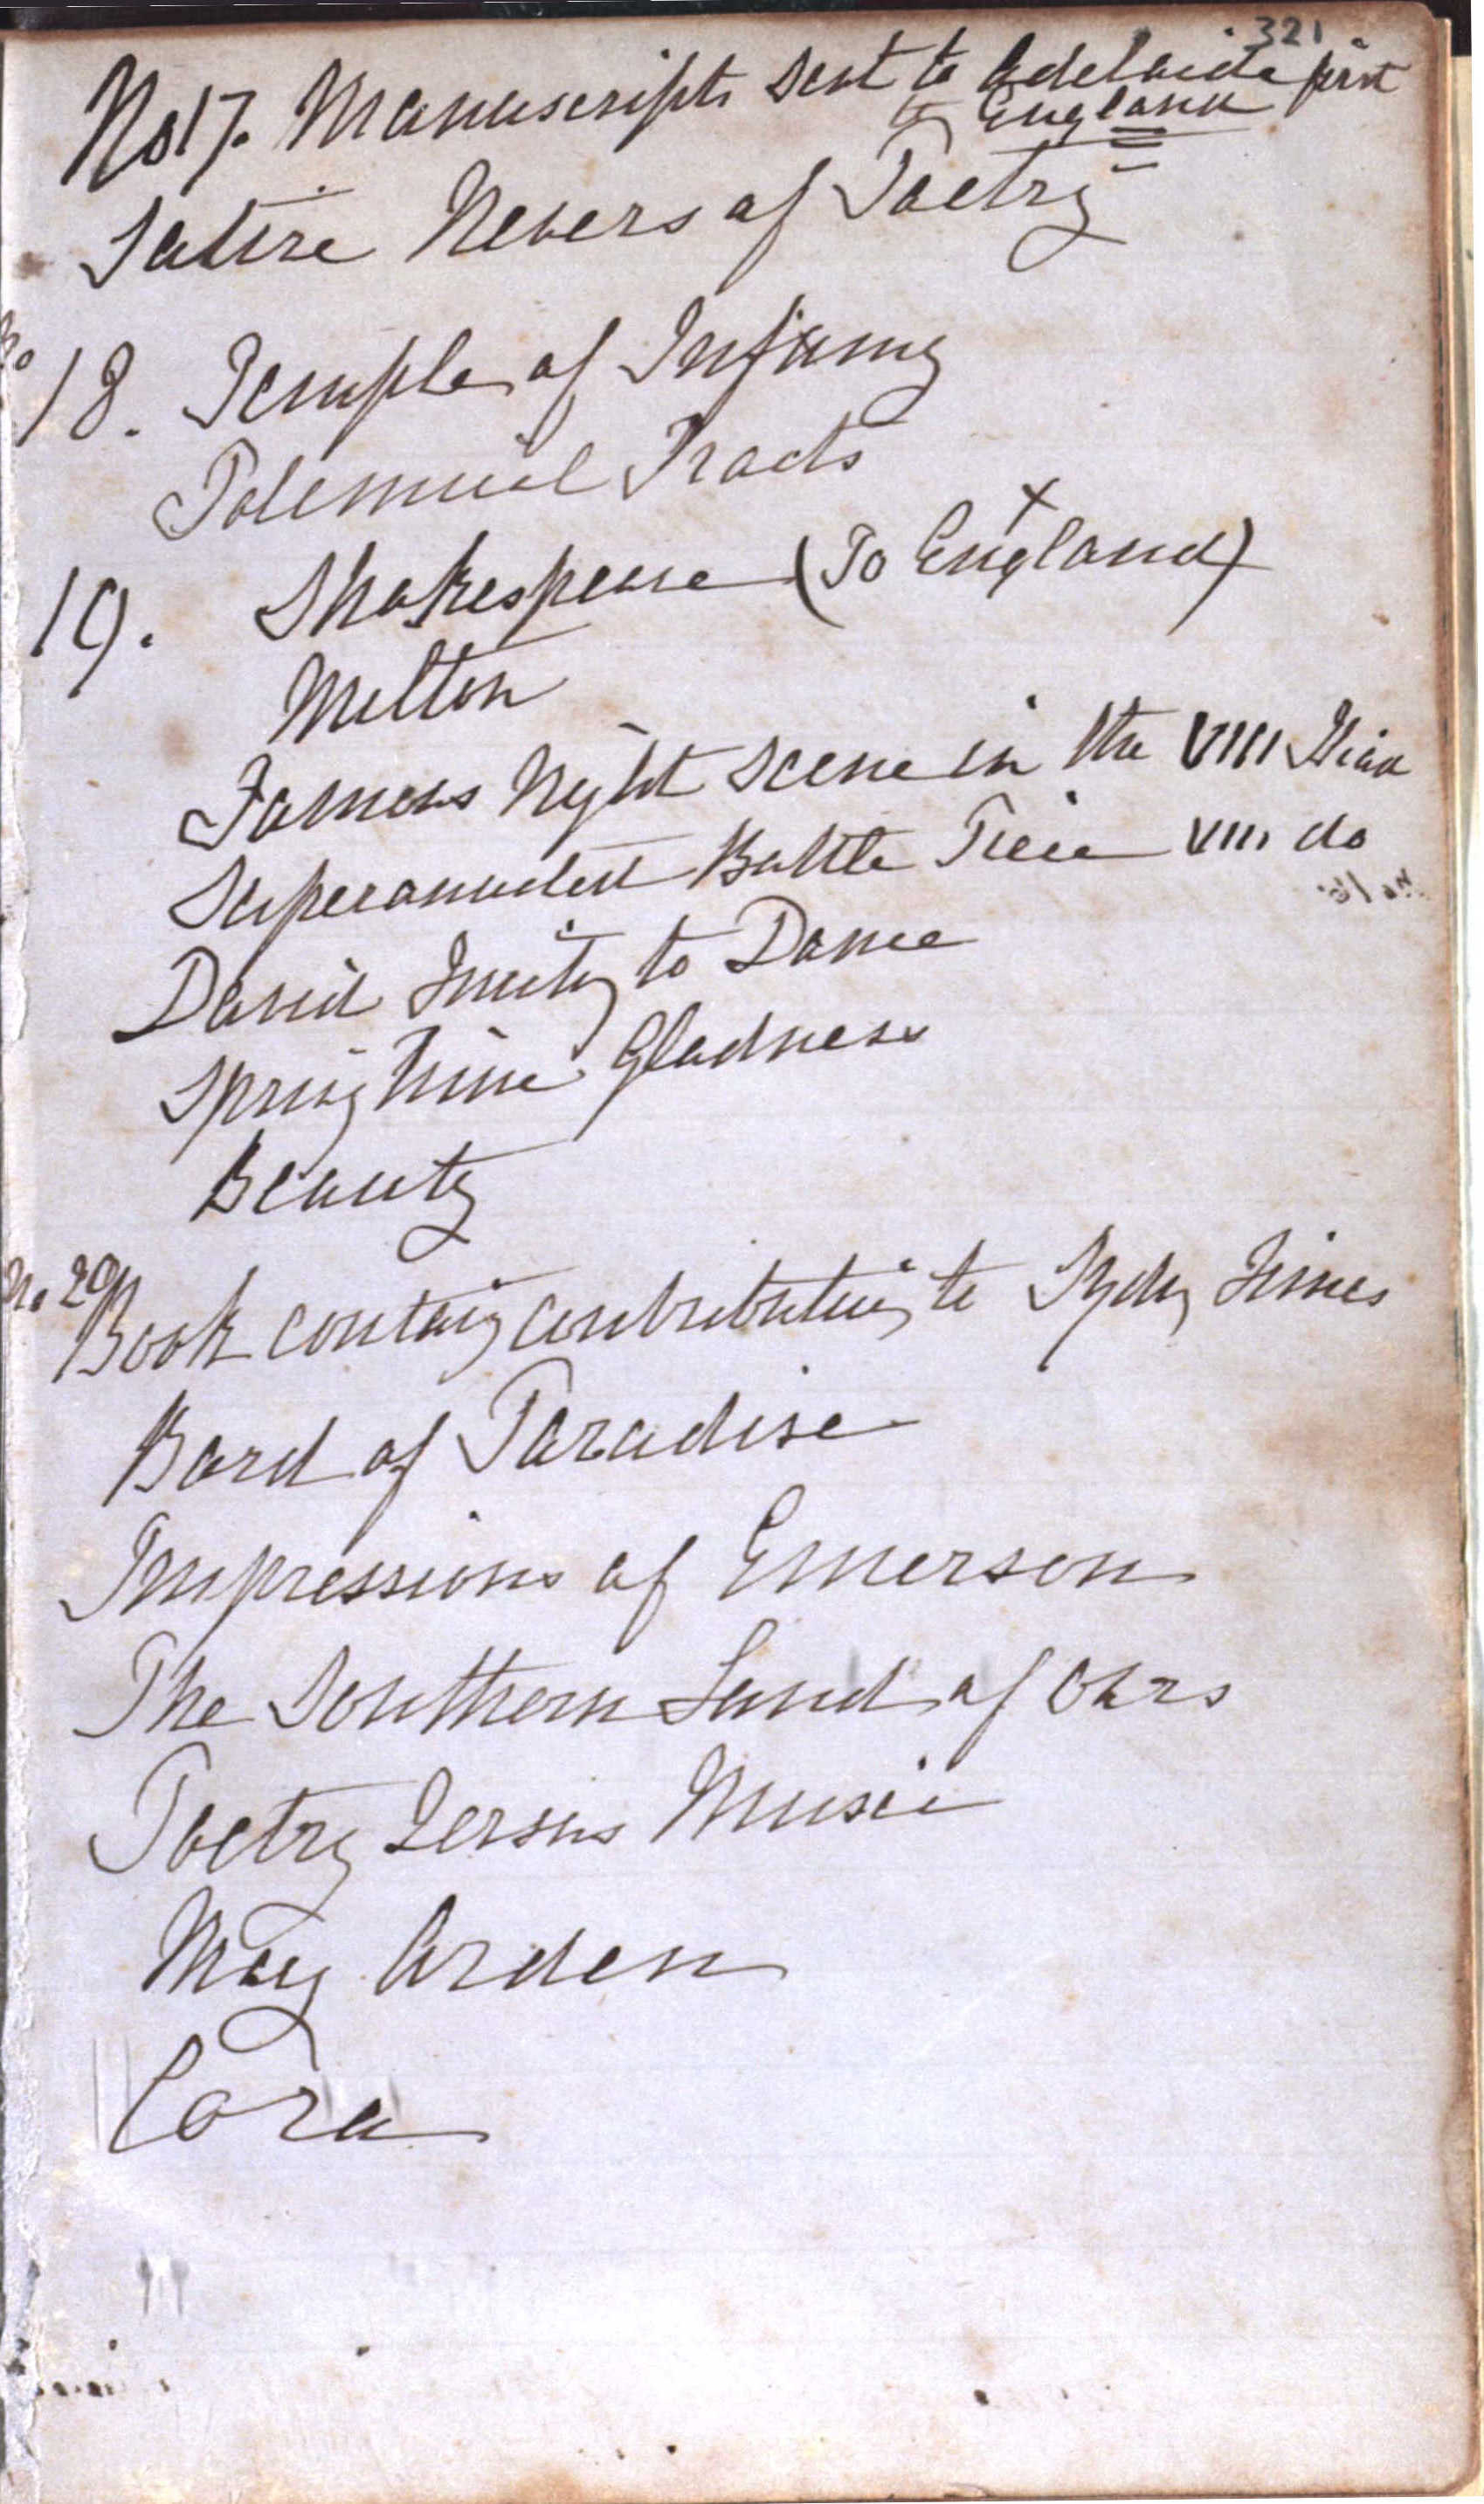 321
No 17. Manuscripts sent to Adelaide first
to England
Satire Nevers of Poetry
No
18. Temple of Infamy
Polemical Tracts
19. Shakespeare (To England)
x
Milton
Famous Night scene in the VIII Iliad
Battle Piece VIII do
David Inviting to Dance
Spring Time Gladness
Beauty
No 20
Book containg contributing to Sydny Times
Bard of Paradise
Impressions of Emerson
The Southern Land of Ours
Poetry Versus Music
Mary Arden
Cora